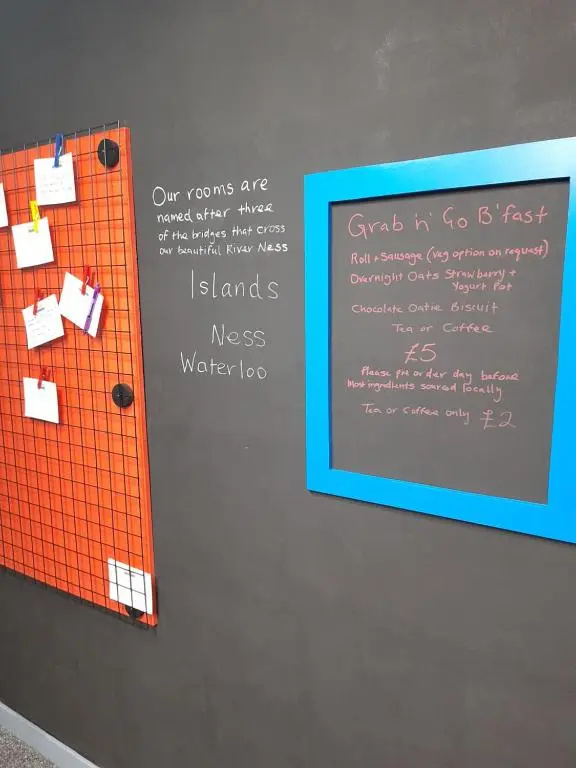 Our rooms are
named after three
of the bridges that cross
our beautiful River Ness
Islands
Ness
Waterloo
Grab 'n' Go B'fast
Roll + Sausage (veg option on request)
Overnight Oats Strawberry +
Yogurt Pot
Chocolate Oatie Biscuit
Tea or Coffee
£5
Please pre order day before
Most ingredients sourced locally
Tea or Coffee only £2